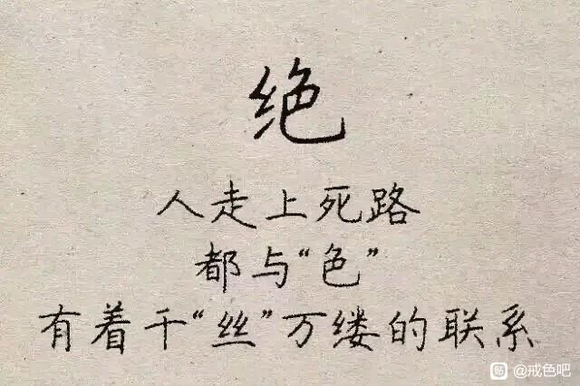 绝
人走上死路
都与“色”
有着千“丝”万缕的联系
贴 @戒色吧